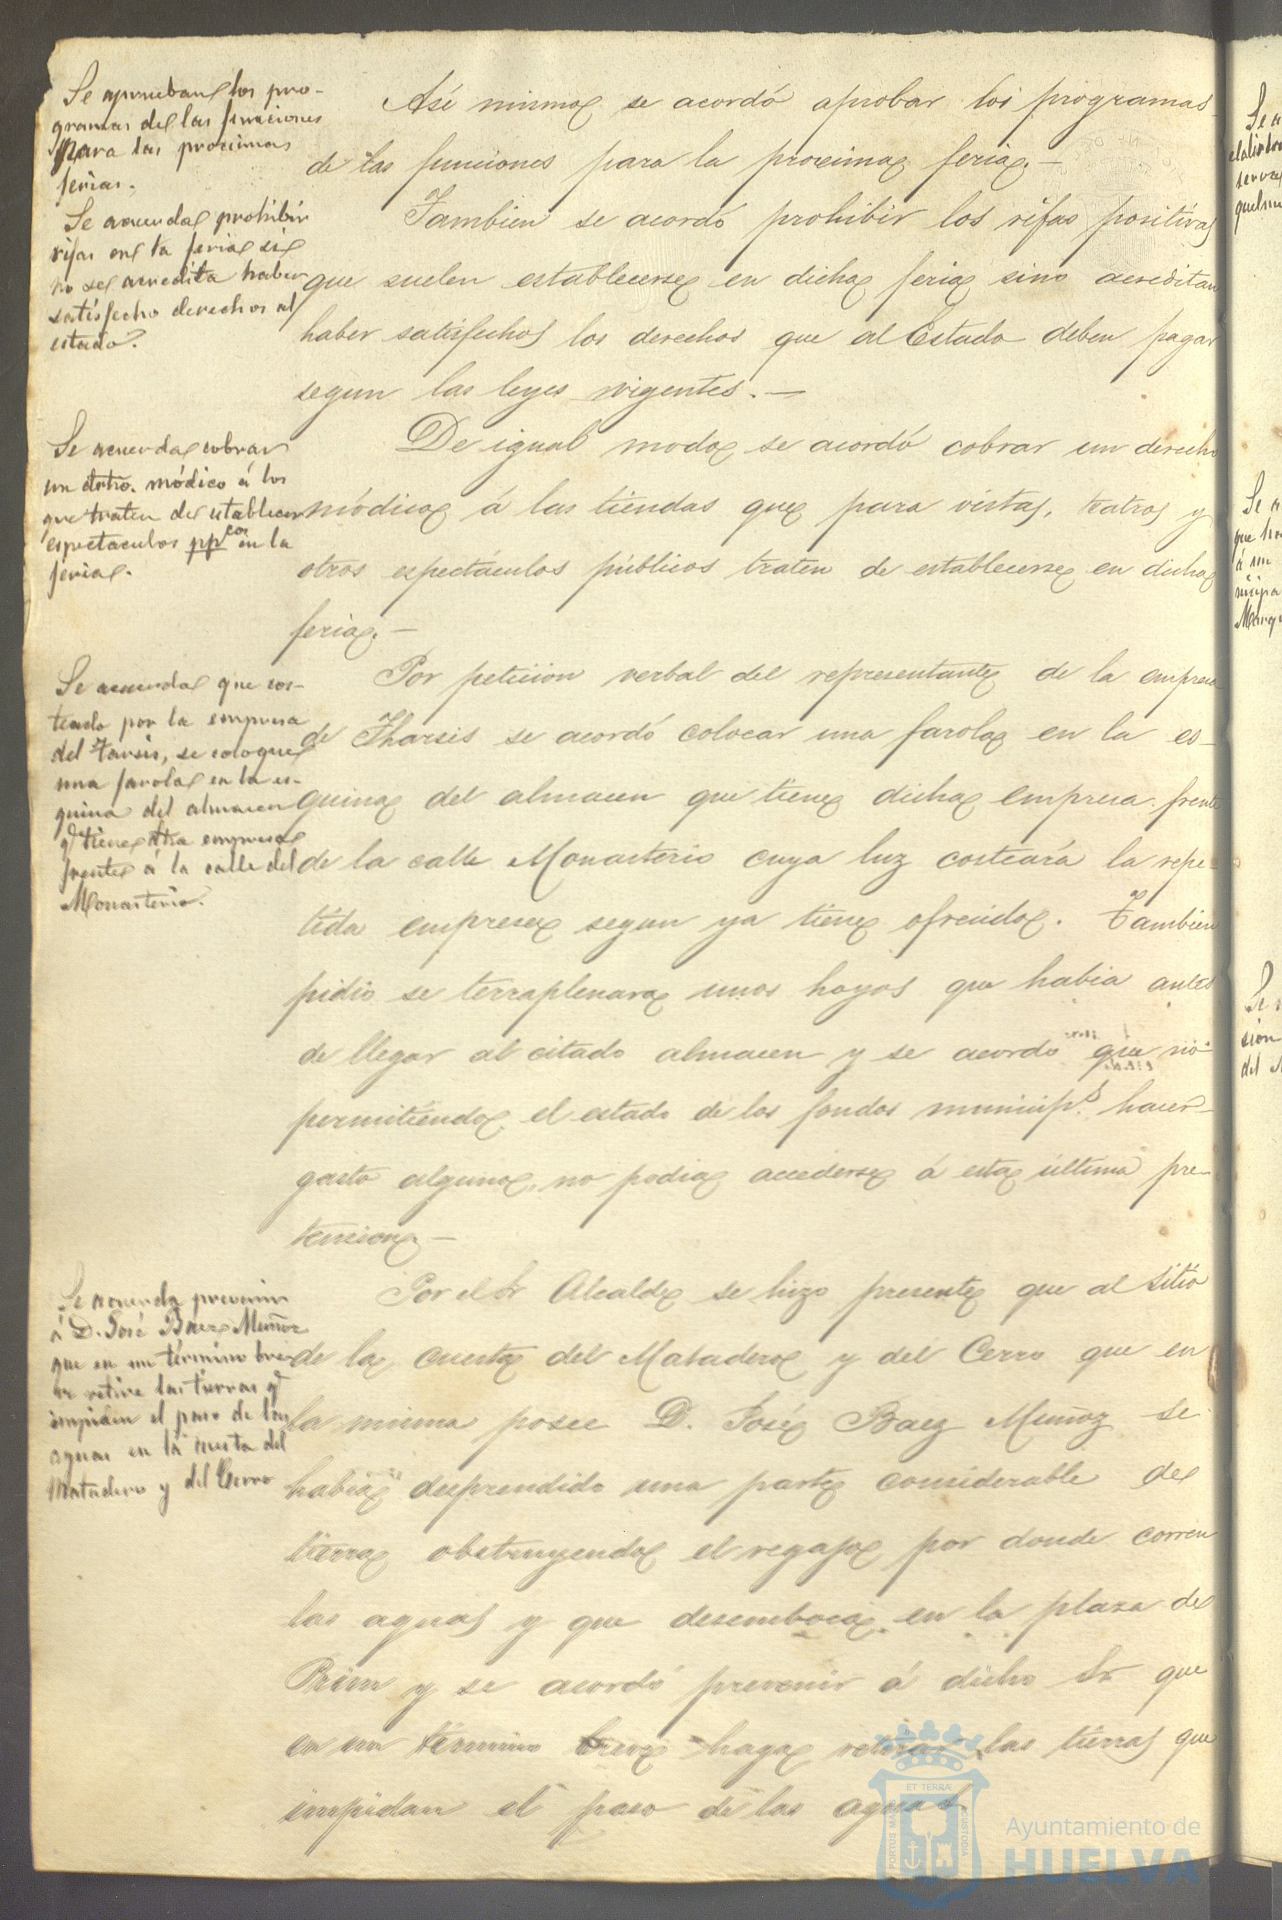 Se aprueban los pro-
gramas de las funciones
para las proximas
ferias.
Asi mismo se acordó aprobar los programas
de las funciones para la proxima feria.—
Se acuerda prohibir
rifas en la feria si
no se acredita haber
satisfecho derechos al
estado.
Tambien se acordó prohibir los rifas positivas
que suelen establecerse en dicha feria sino acreditan
haber satisfechos los derechos que al Estado deben pagar
segun las leyes vigentes.—
Se acuerda cobrar
un dro. módico á los
que traten de establecer
espectaculos ppcos en la
feria.
De igual modo se acordó cobrar un derecho
módico á las tiendas que para vistas, teatros y
otros espectáculos públicos traten de establecerse en dicha
feria.—
Se acuerda que cos-
teado por la empresa
del Tarsis, se coloque
una farola en la es-
quina del almacen
q.e tiene dha empresa
frente á la calle del
Monasterio.
Por peticion verbal del representante de la empresa
de Tharsis se acordó colocar una farola en la es-
quina del almacen que tiene dicha empresa frente
de la calle Monasterio cuya luz costeará la repe-
tida empresa segun ya tiene ofrecido. Tambien
pidio se terraplenara unos hoyos que habia antes
de llegar al citado almacen y se acordó que no
permitiendo el estado de los fondos municip.s hacer
gasto alguno, no podia accederse á esta ultima pre-
tencion.—
Se acuerda prevenir
á D. José Baez Muñoz
que en un término bre-
ve retire las tierras q.e
impiden el paso de las
aguas en la cuesta del
Matadero y del Cerro
Por el Sr Alcalde se hizo presente que al sitio
de la cuesta del Matadero y del Cerro que en
la misma posee D. José Baez Muñoz se
habia desprendido una parte considerable de
tierra obstruyendo el regajo por donde corren
las aguas y que desemboca en la plaza de
Prim y se acordó prevenir á dicho Sr que
en un término breve haga retirar las tierras que
impidan el paso de las aguas.
PORTUS MARIS
ET TERRÆ
CUSTODIA
Ayuntamiento de
HUELVA